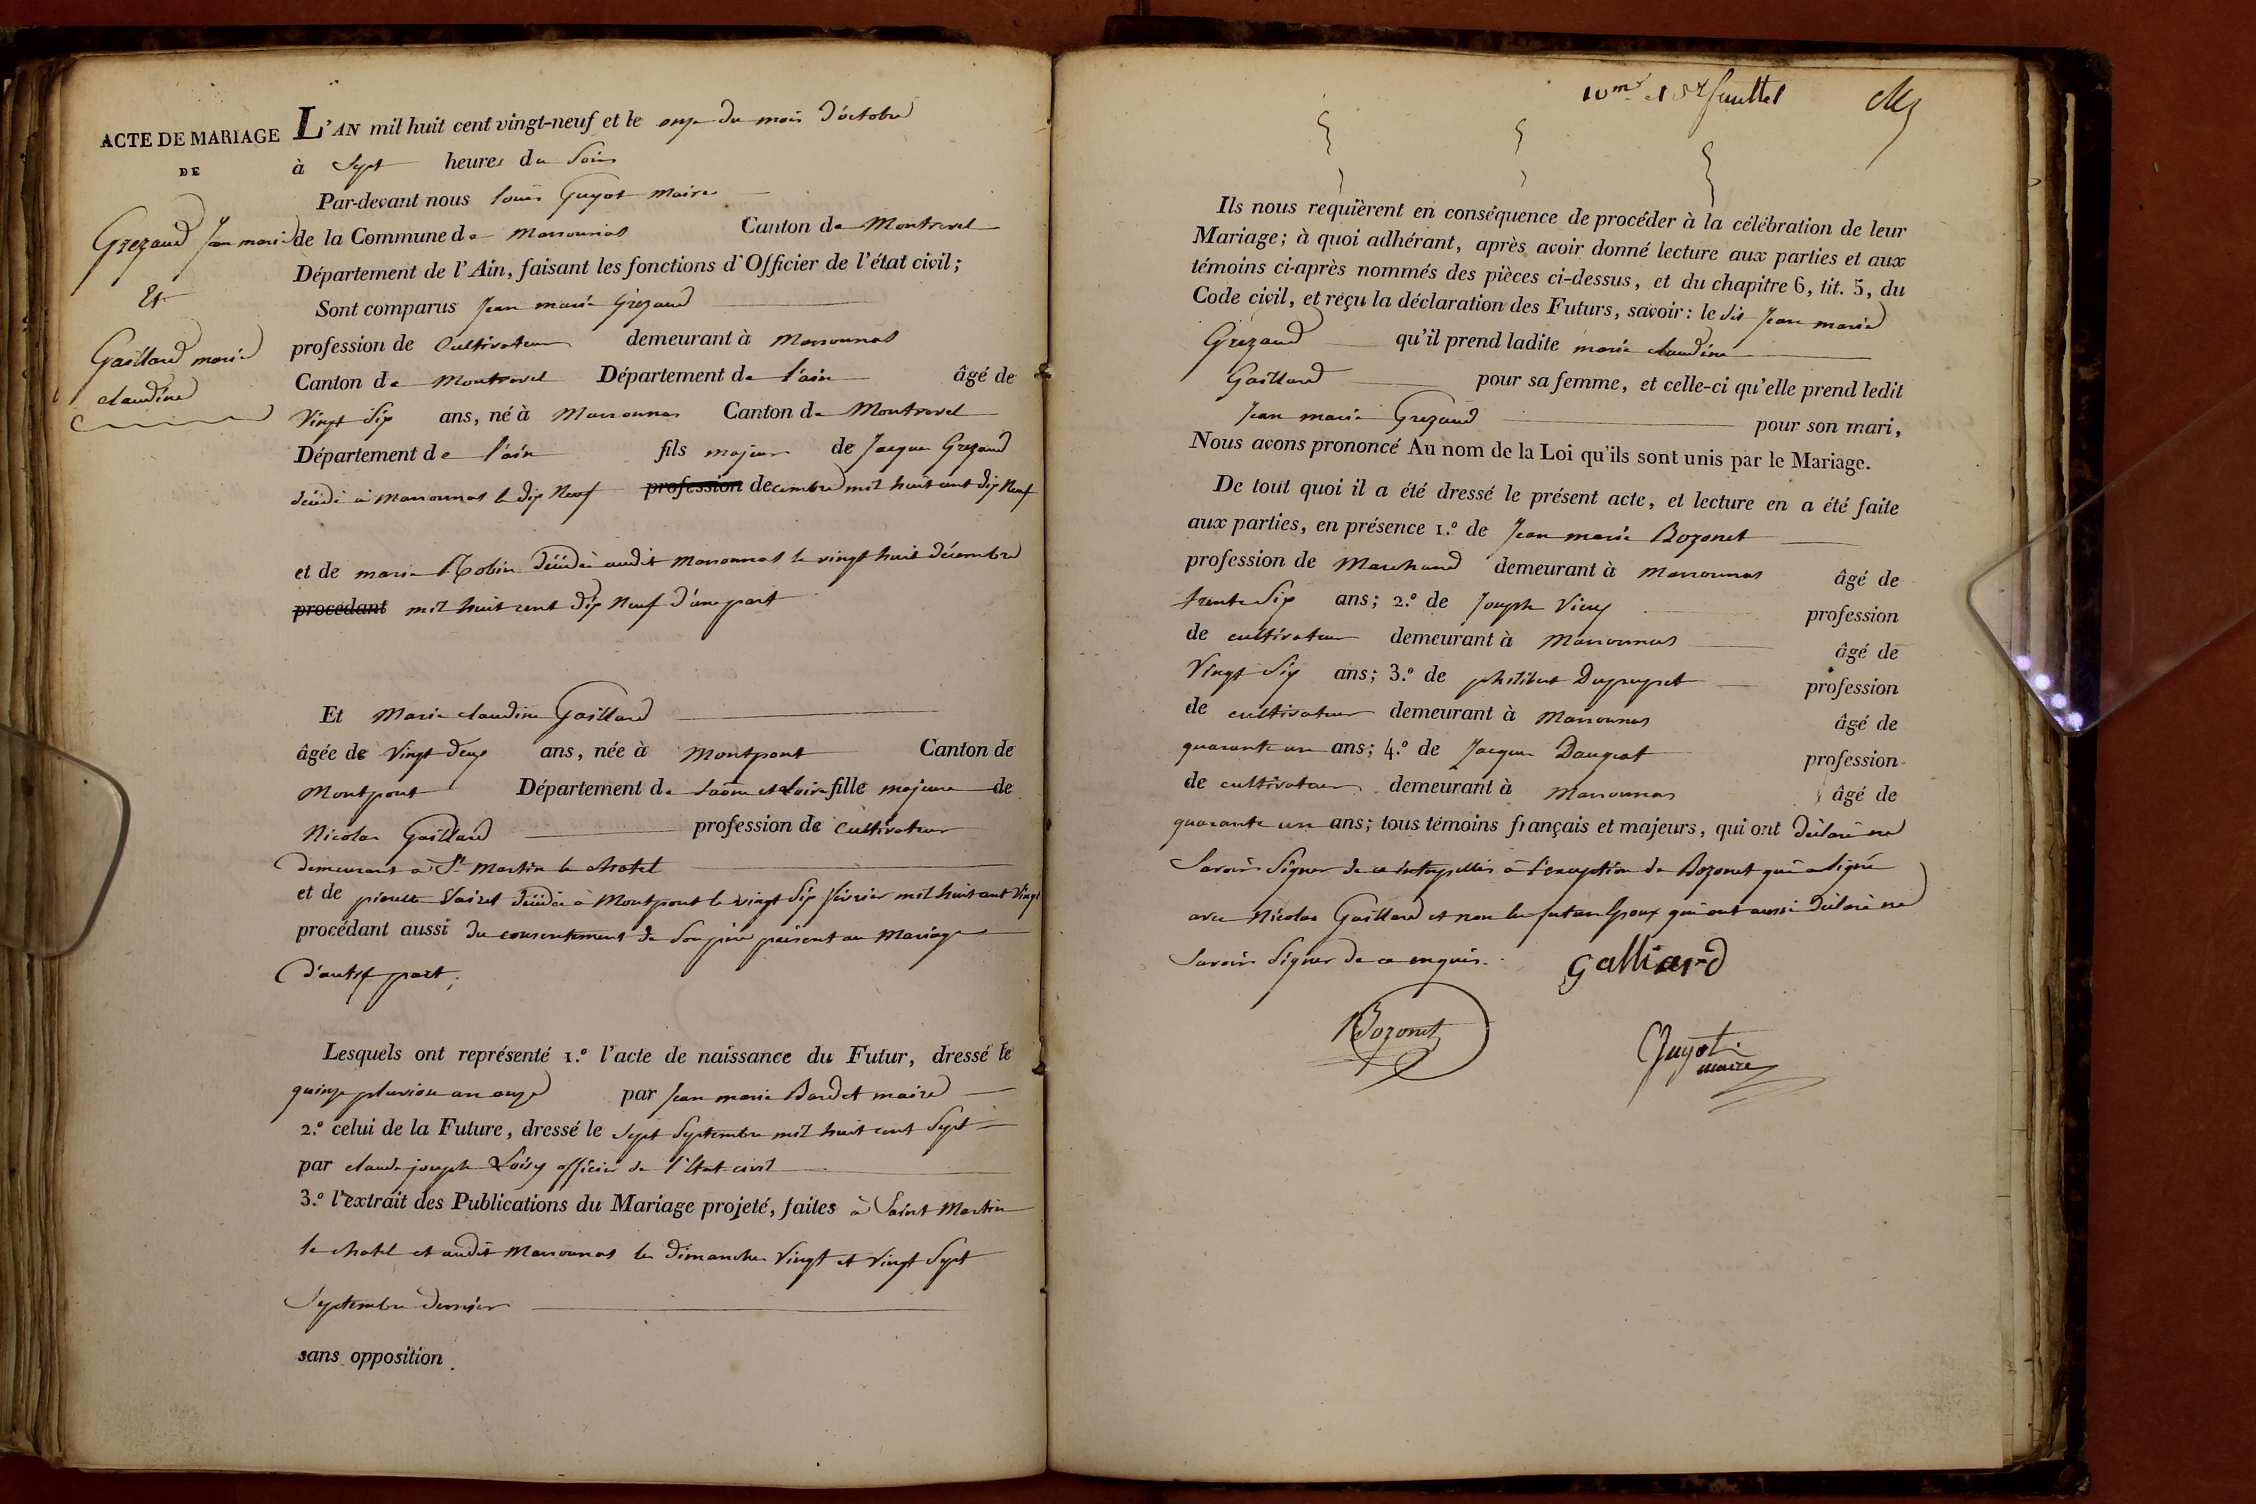 ACTE DE MARIAGE
DE
Grezaud Jean marie
Et
Gaillard marie
claudine
L'AN mil huit cent vingt-neuf et le onze du mois d'octobre
à Sept heures du Soir
Par-devant nous louis Guyot maire
de la Commune de Marsonnas Canton de Montrevel
Département de l'Ain, faisant les fonctions d'Officier de l'état civil;
Sont comparus Jean marie Grezaud
profession de Cultivateur demeurant à Marsonnas
Canton de Montrevel Département de l'ain âgé de
Vingt Six ans, né à Marsonnas Canton de Montrevel
Département de l'ain fils majeur de Jacque Grezaud
décédé à Marsonnas le dix Neuf profession decembre mil huit cent dix Neuf
et de marie Robin décédée audit Marsonnas le vingt huit décembre
procédant mil huit cent dix Neuf d'une part
Et Marie claudine Gaillard
âgée de Vingt deux ans, née à Montpont Canton de
Montpont Département de Saône et Loire fille majeure de
Nicolas Gaillard profession de Cultivateur
demeurant à St Martin le chatel
et de pierrette décédée à Montpont le vingt Six février mil huit cent Vingt
procédant aussi du consentement de Son père présent au Mariage
d'autre part;
Lesquels ont représenté 1.º l'acte de naissance du Futur, dressé le
quinze pluviose an onze par Jean marie Bardet maire
2.º celui de la Future, dressé le Sept Septembre mil huit cent Sept
par claude joseph Loisy officier de l'Etat civil
3.º l'extrait des Publications du Mariage projeté, faites à Saint Martin
le chatel et audit Marsonnas les dimanches Vingt et Vingt Sept
Septembre dernier
sans opposition.
10me et feuillet
Ils nous requièrent en conséquence de procéder à la célébration de leur
Mariage; à quoi adhérant, après avoir donné lecture aux parties et aux
témoins ci-après nommés des pièces ci-dessus, et du chapitre 6, tit. 5, du
Code civil, et reçu la déclaration des Futurs, savoir: le dit Jean marie
Grezaud qu'il prend ladite marie claudine
Gaillard pour sa femme, et celle-ci qu'elle prend ledit
Jean marie Grezaud pour son mari,
Nous avons prononcé Au nom de la Loi qu'ils sont unis par le Mariage.
De tout quoi il a été dressé le présent acte, et lecture en a été faite
aux parties, en présence 1.º de Jean marie Bozonet
profession de Marchand demeurant à Marsonnas âgé de
trente Six ans; 2.º de Joseph Vieux profession
de cultivateur demeurant à Marsonnas âgé de
Vingt Six ans; 3.º de philibert Dupupet profession
de cultivateur demeurant à Marsonnas âgé de
quarante un ans; 4.º de Jacque Daujat profession
de cultivateur demeurant à Marsonnas âgé de
quarante un ans; tous témoins français et majeurs, qui ont déclaré ne
Savoir Signer de ce interpellés à l'exception de Bozonet qui a Signé
avec Nicolas Gaillard et non les futurs Epoux qui ont aussi déclaré ne
Savoir Signer de ce enquis.
Galliard
Bozonet
Guyot
maire